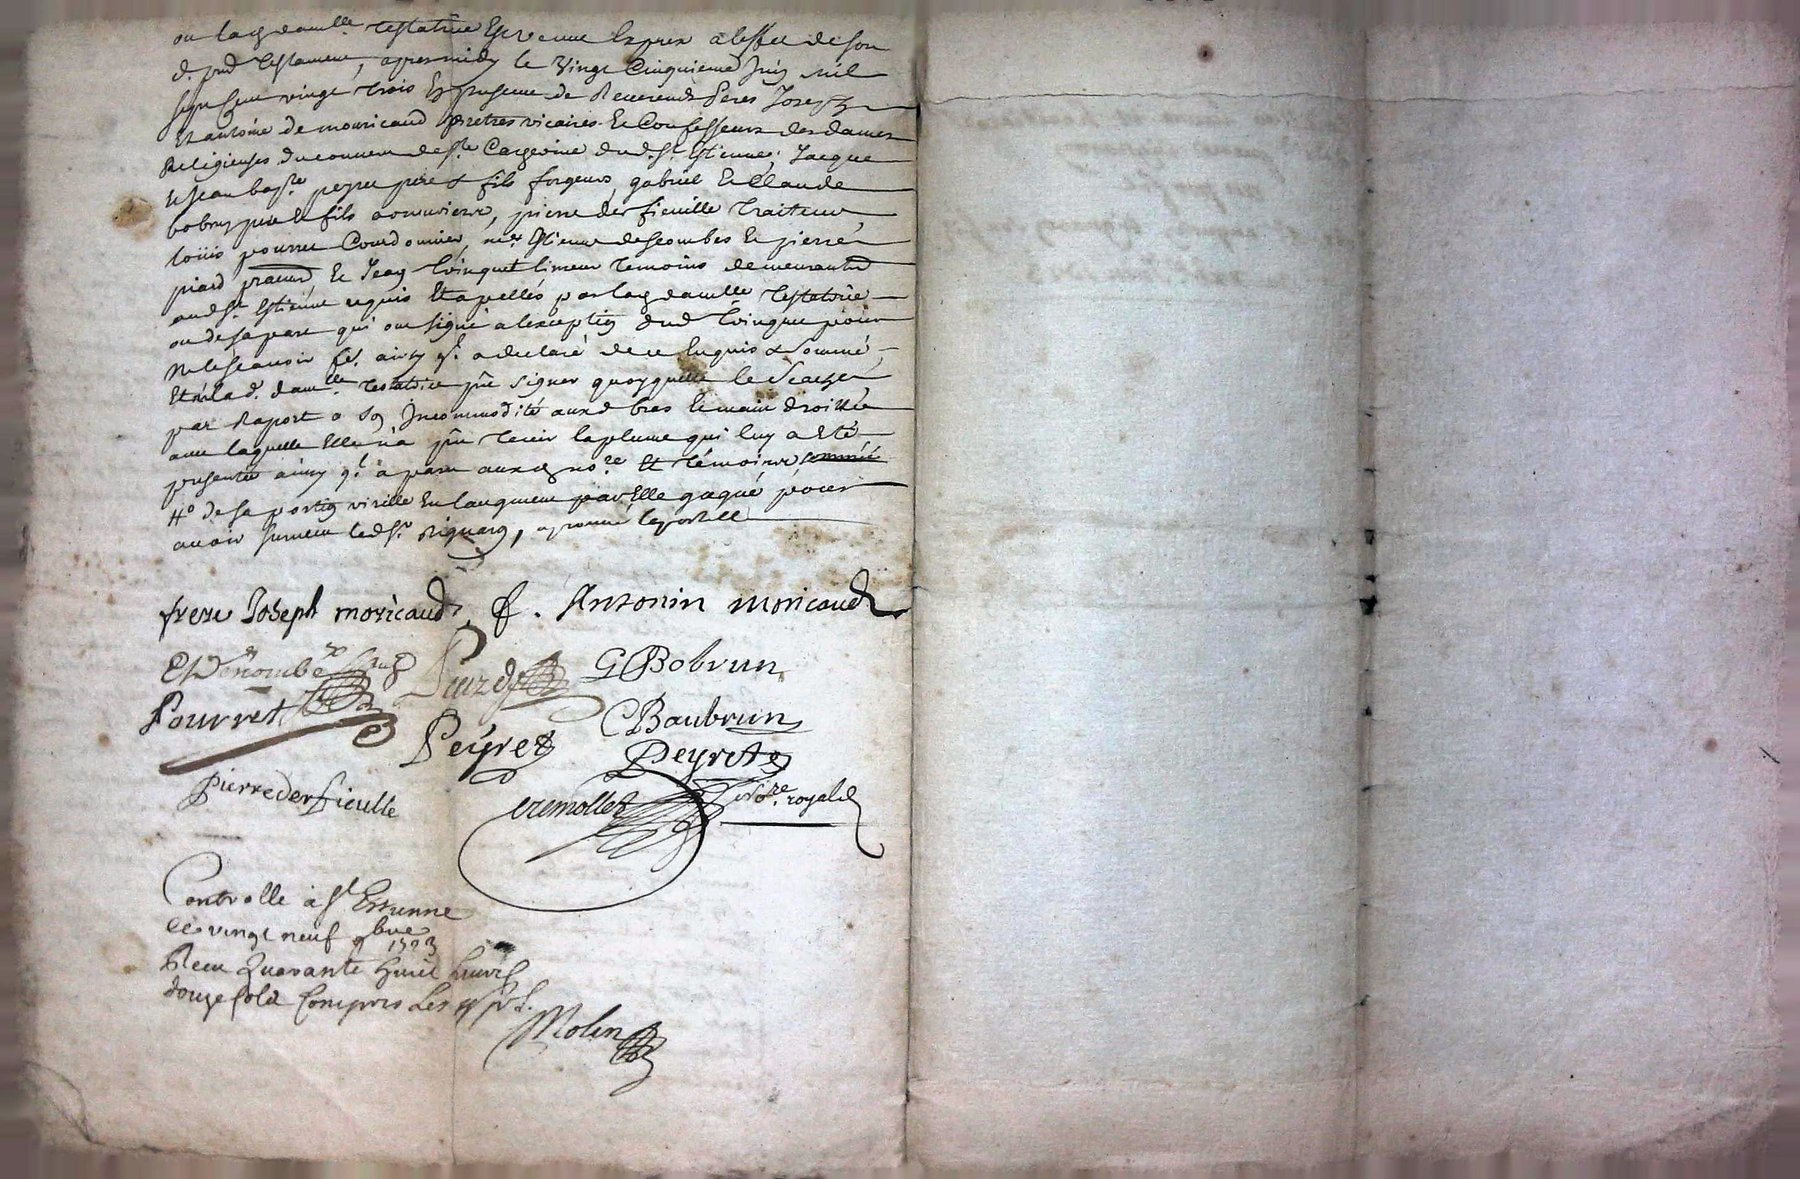 ou lad. damlle. testatrice Est venue Exprex a leffet de son
d. pnt testament, apres midy le Vingt Cinquieme Juin mil
sept cent vingt trois En presence de Reverends Peres Joseph
Et antoine de mouricaud pretres vicaires Et Confesseurs des dames
Religieuses du couvent de Ste. Catherine dud. St. Estienne, Jacque
Et Jean bapte. peyret pere & fils forgeurs, gabriel Et Claude
bobrun pere Et fils armuriers, pierre der fieuille traiteur
loüis pourret Cordonnier, me. Estienne descombes Et pierre
piard praticn, Et Jean trinquet limeur temoins demeurants
aud. St. Estienne requis Et apellés par lad. damlle testatrice
ou de sa part qui ont signé a lexception dud. trinquet pour
ne le scavoir fe. ainsy ql. a declaré de ce Enquis & sommé,
Et n'a lad. damlle. testatrice pu signer quoyquelle le scache
par Raport a son Incommodité aux d. bras Et main droitte
avec laquelle Elle n'a pu tenir la plume qui luy a Eté
presentée ainsy ql. a paru auxd. nore. Et témoins
de sa portion virille En laugment par Elle gagné pour
avoir survecu led. Sr. aprouvé
frere Joseph moricaud f. Antonin moricaud
G Bobrun
Pourret C Baubrun
Peyret Peyret
Pierre der fieuille
tremollet Nore. royal
Controllé à St Estienne
le vingt neuf 9bre
1723
Receu Quarante huit livres
douze sols Compris Les 4 s. p. l.
Molin